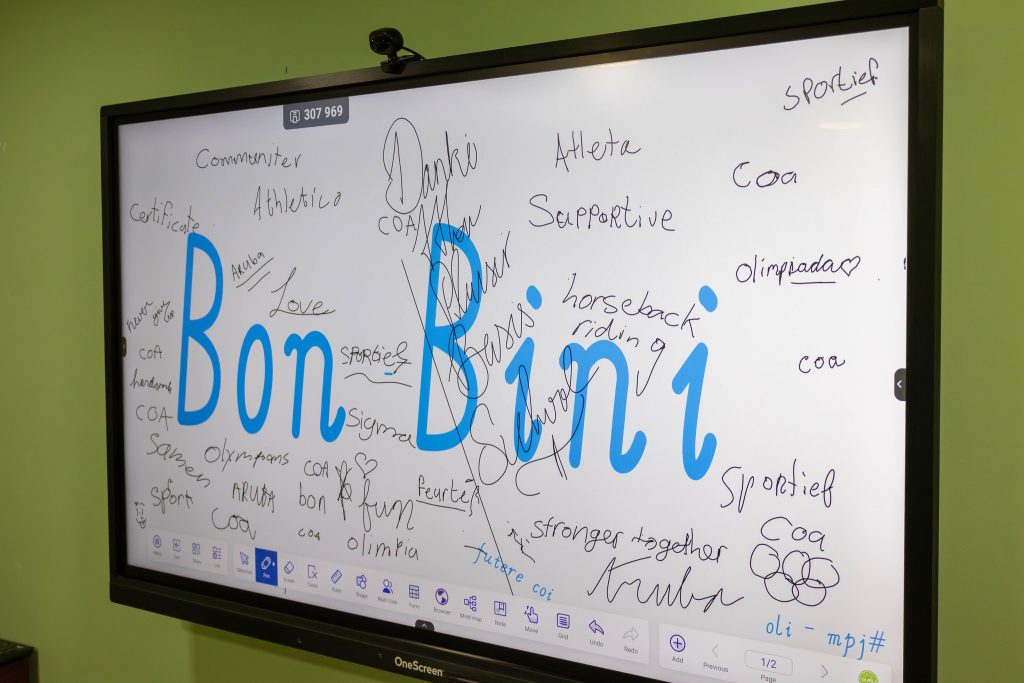 307 969
sportief
Communiter
Danki
Atleta
Coa
Certificate
Athletico
COA
Supportive
Aruba
Olimpiada
Love
horseback
riding
Bon Bini
Basis
School
COA
sportief
coa
COA
Sigma
Samen
Olympians
COA
Sportief
sport
ARUBA
bon
fun
Coa
COA
olimpia
stronger together
Coa
Aruba
futere coi
oli - mpj#
Menu
Selection
Pen
Eraser
Clean
Ruler
Shape
Multi User
Form
Browser
Mind map
Note
Move
Grid
Undo
Redo
Add
Previous
1/2
Page
OneScreen